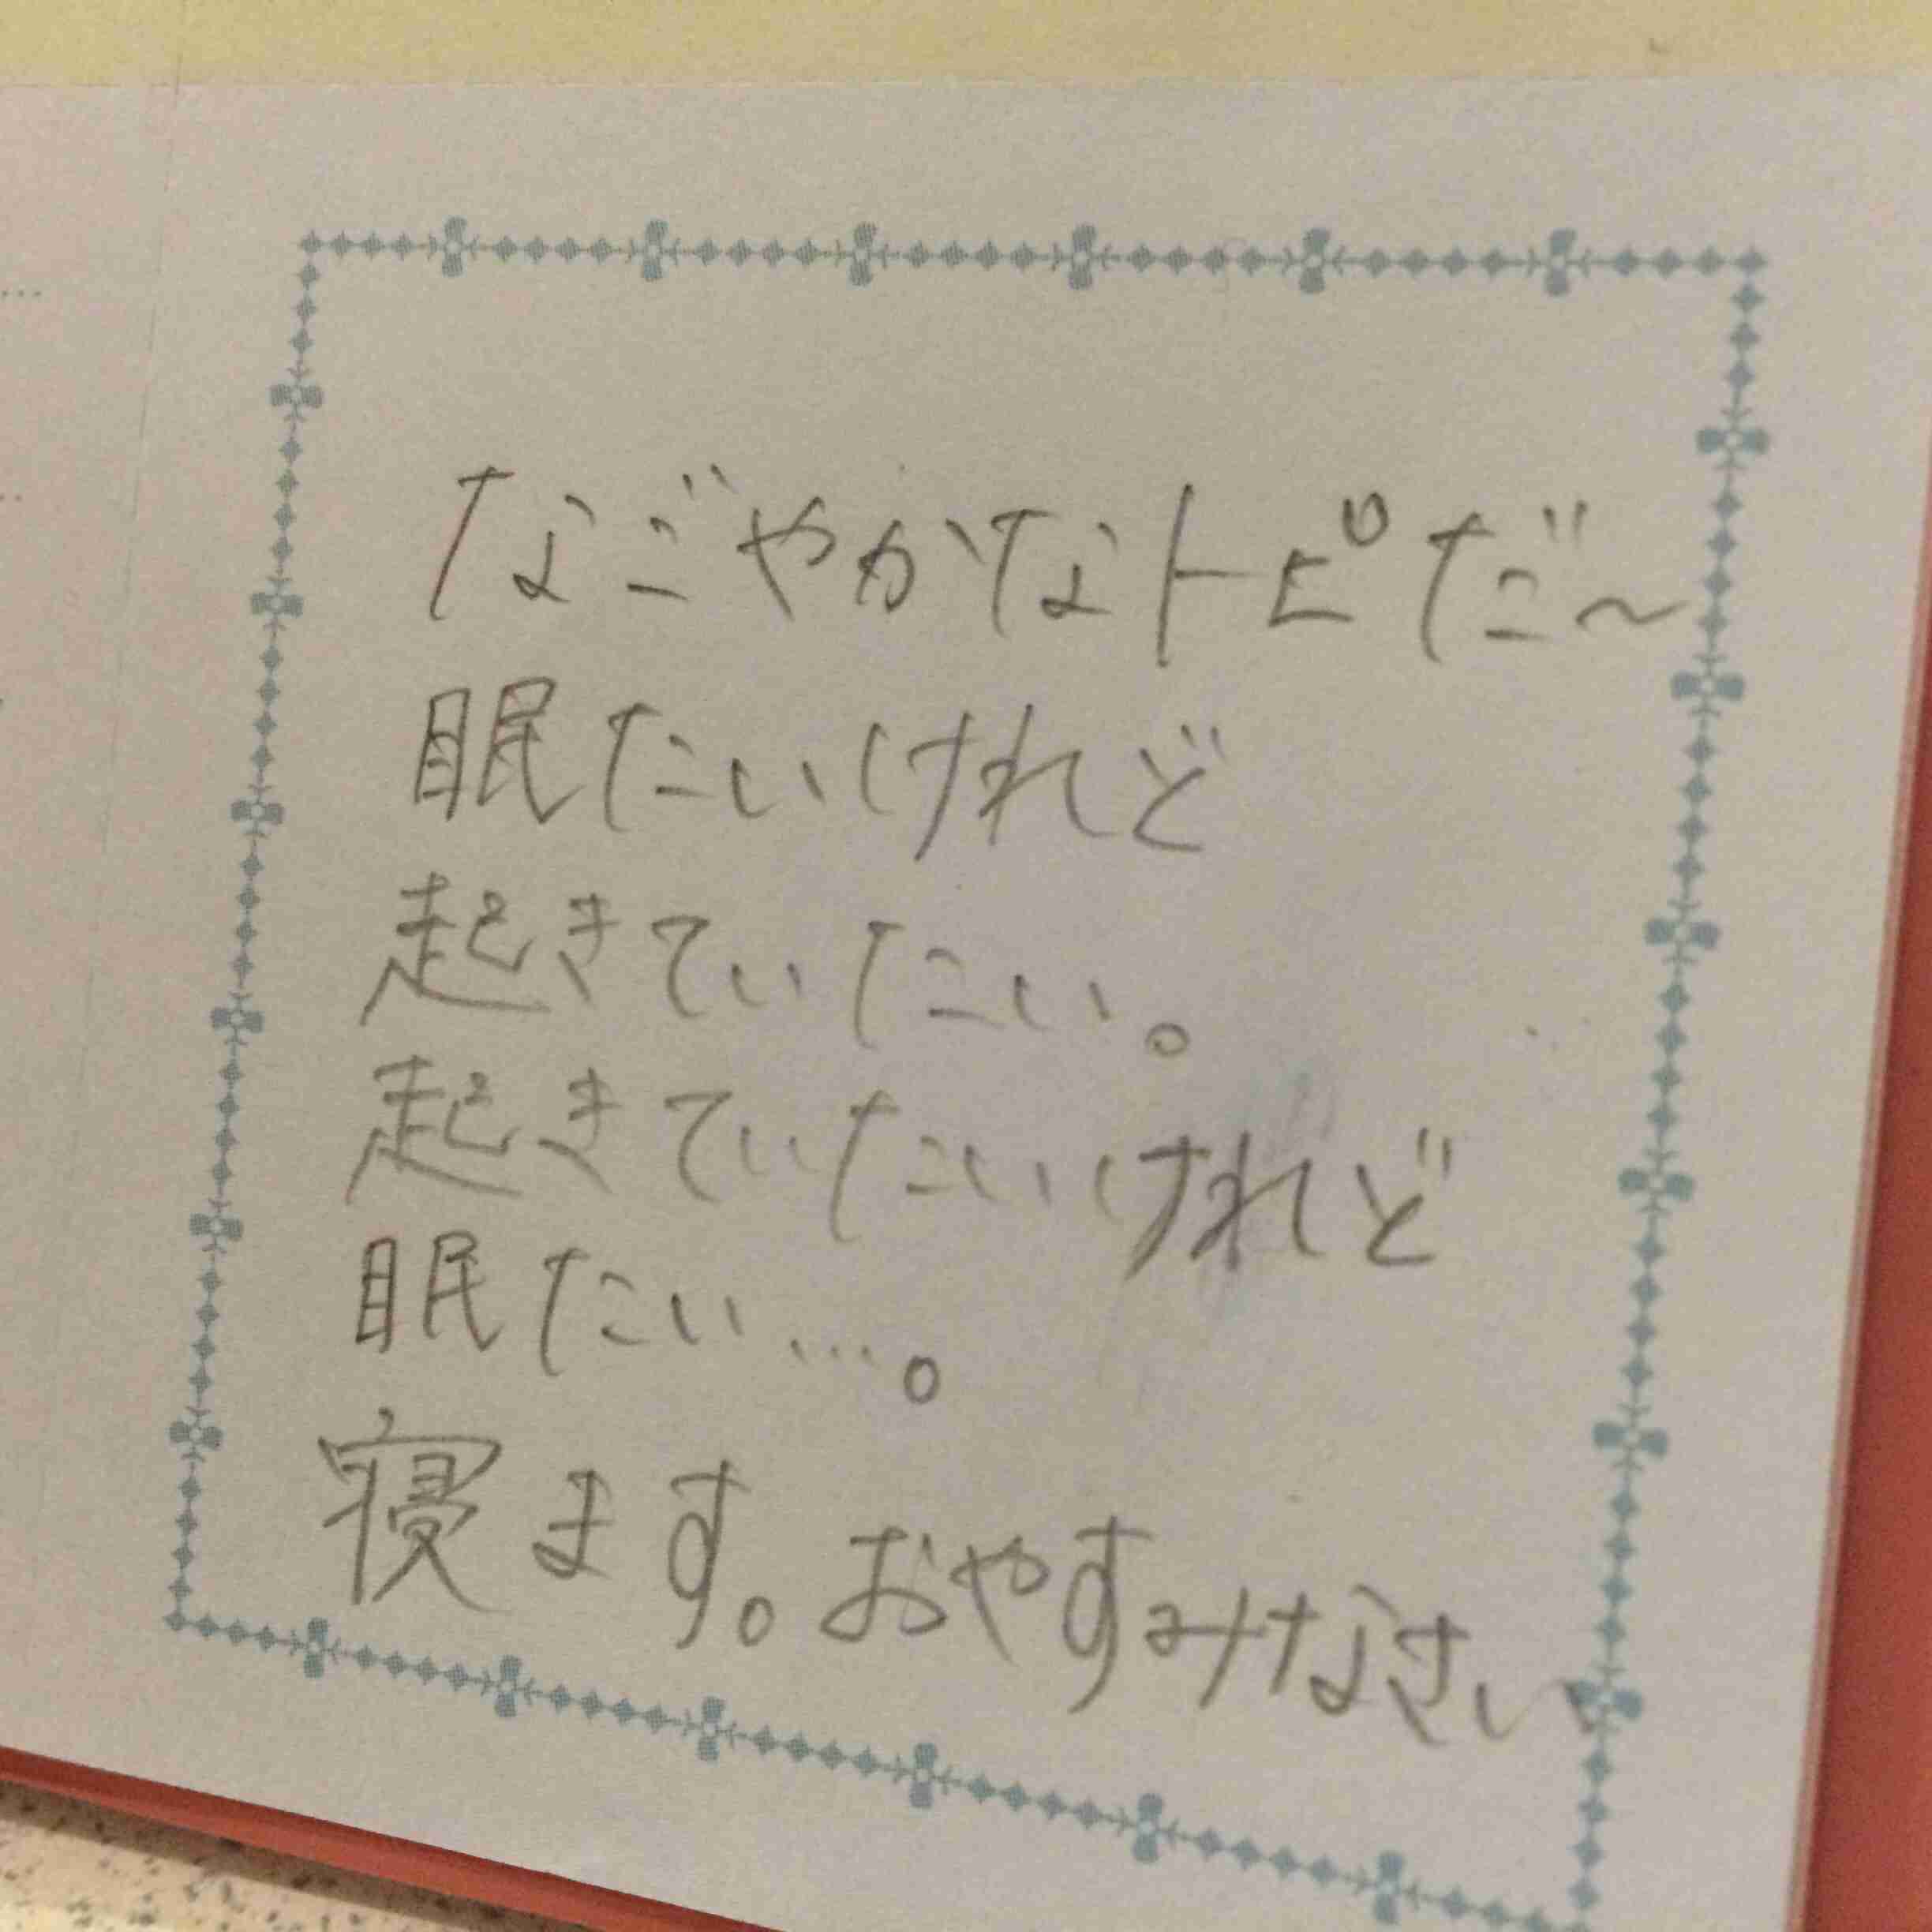 なごやかなトピだ～
眠たいけれど
起きていたい。
起きていたいけれど
眠たい…。
寝ます。おやすみなさい